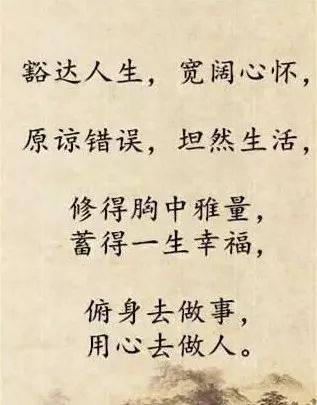 豁达人生，宽阔心怀，
原谅错误，坦然生活，
修得胸中雅量，
蓄得一生幸福，
俯身去做事，
用心去做人。